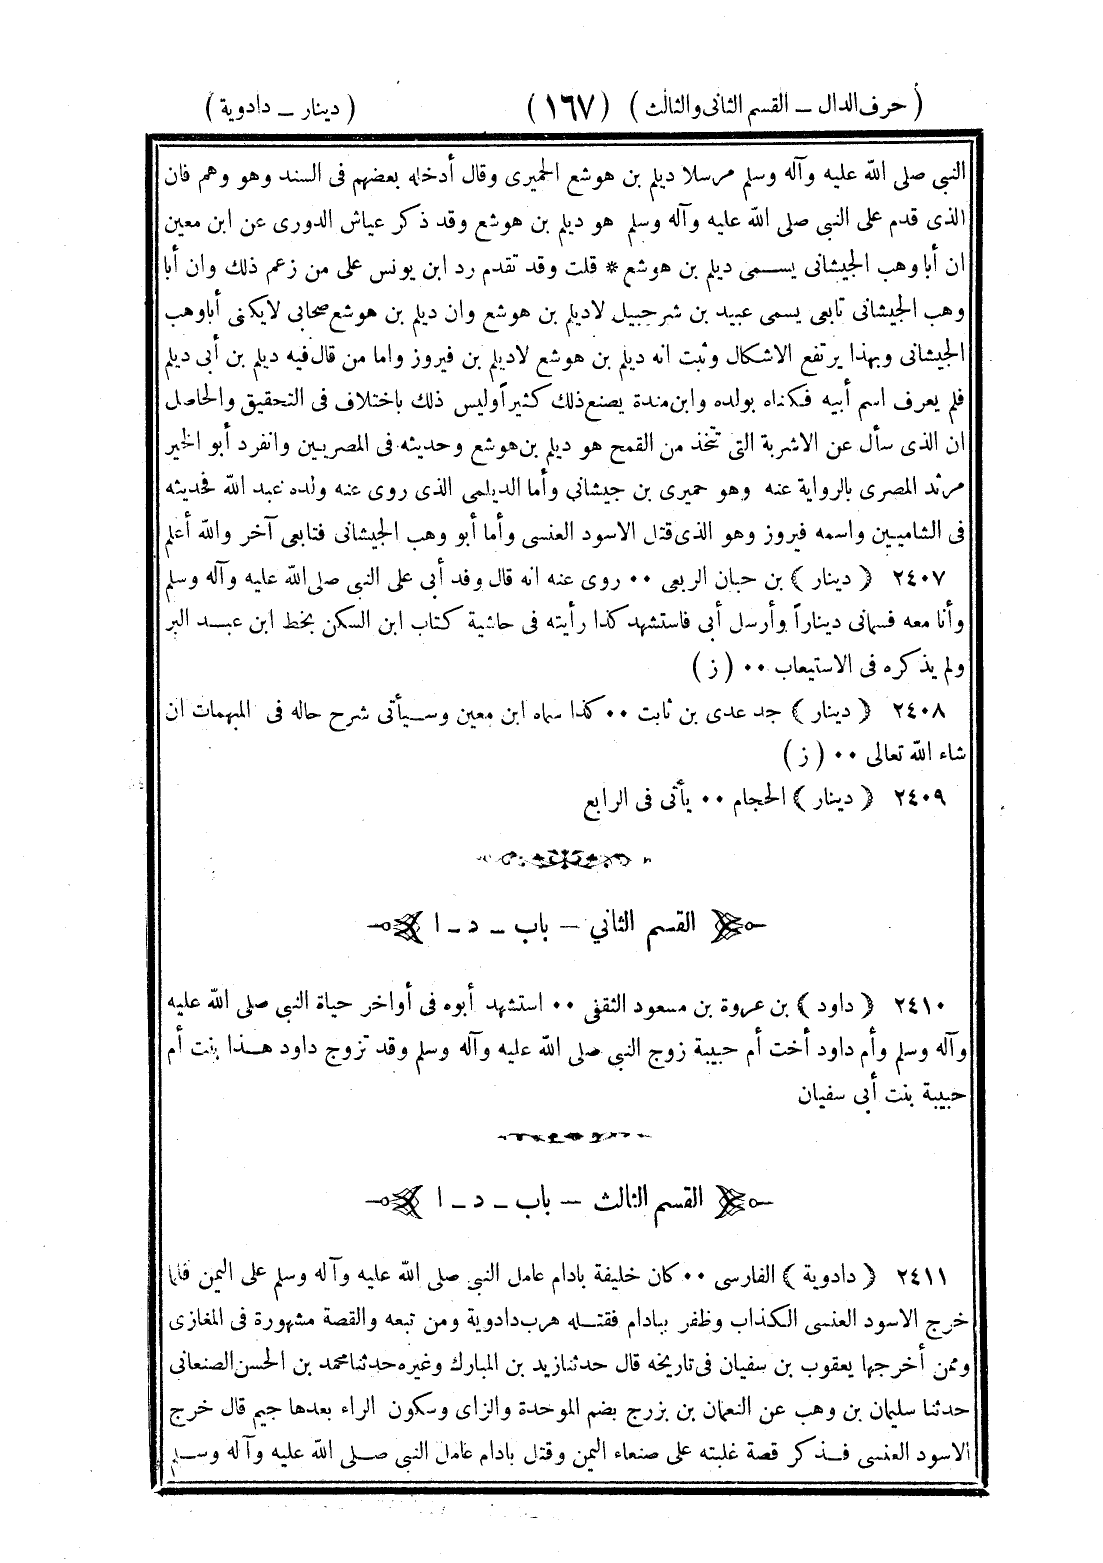 ( حرف الدال ــ القسم الثانى والثالث ) ( ١٦٧ ) ( دينار ــ دادوية )
النبى صلى الله عليه وآله وسلم مرسلا ديلم بن هوشع الحميرى وقال أدخله بعضهم فى السند وهو وهم فان
الذى قدم على النبى صلى الله عليه وآله وسلم هو ديلم بن هوشع وقد ذكر عياش الدورى عن ابن معين
ان أبا وهب الجيشانى يسمى ديلم بن هوشع * قلت وقد تقدم رد ابن يونس على من زعم ذلك وان أبا
وهب الجيشانى تابعى يسمى عبيد بن شرحبيل لاديلم بن هوشع وان ديلم بن هوشع صحابى لايكنى أباوهب
الجيشانى وبهذا يرتفع الاشكال وثبت انه ديلم بن هوشع لاديلم بن فيروز واما من قال فيه ديلم بن أبى ديلم
فلم يعرف اسم أبيه فكناه بولده وابن مندة يصنع ذلك كثيراً وليس ذلك باختلاف فى التحقيق والحاصل
ان الذى سأل عن الاشربة التى تتخذ من القمح هو ديلم بن هوشع وحديثه فى المصريين وانفرد أبو الخير
مرثد المصرى بالرواية عنه وهو حميرى بن جيشانى وأما الديلمى الذى روى عنه ولده عبد الله فحديثه
فى الشاميين واسمه فيروز وهو الذى قتل الاسود العنسى وأما أبو وهب الجيشانى فتابعى آخر والله أعلم
٢٤٠٧ ( دينار ) بن حبان الربعى ٠٠ روى عنه انه قال وفد أبى على النبى صلى الله عليه وآله وسلم
وأنا معه فسمانى ديناراً وأرسل أبى فاستشهد كذا رأيته فى حاشية كتاب ابن السكن بخط ابن عبد البر
ولم يذكره فى الاستيعاب ٠٠ ( ز )
٢٤٠٨ ( دينار ) جد عدى بن ثابت ٠٠ كذا سماه ابن معين وسيأتى شرح حاله فى المبهمات ان
شاء الله تعالى ٠٠ ( ز )
٢٤٠٩ ( دينار ) الحجام ٠٠ يأتى فى الرابع
القسم الثاني – باب ــ د ــ ا
٢٤١٠ ( داود ) بن عروة بن مسعود الثقفى ٠٠ استشهد أبوه فى أواخر حياة النبى صلى الله عليه
وآله وسلم وأم داود أخت أم حبيبة زوج النبى صلى الله عليه وآله وسلم وقد تزوج داود هذا بنت أم
حبيبة بنت أبى سفيان
القسم الثالث – باب ــ د ــ ا
٢٤١١ ( دادوية ) الفارسى ٠٠ كان خليفة بادام عامل النبى صلى الله عليه وآله وسلم على اليمن فلما
خرج الاسود العنسى الكذاب وظفر ببادام فقتله هرب دادوية ومن تبعه والقصة مشهورة فى المغازى
وممن أخرجها يعقوب بن سفيان فى تاريخه قال حدثنا زيد بن المبارك وغيره حدثنا محمد بن الحسن الصنعانى
حدثنا سليمان بن وهب عن النعمان بن بزرج بضم الموحدة والزاى وسكون الراء بعدها جيم قال خرج
الاسود العنسى فذكر قصة غلبته على صنعاء اليمن وقتل بادام عامل النبى صلى الله عليه وآله وسلم